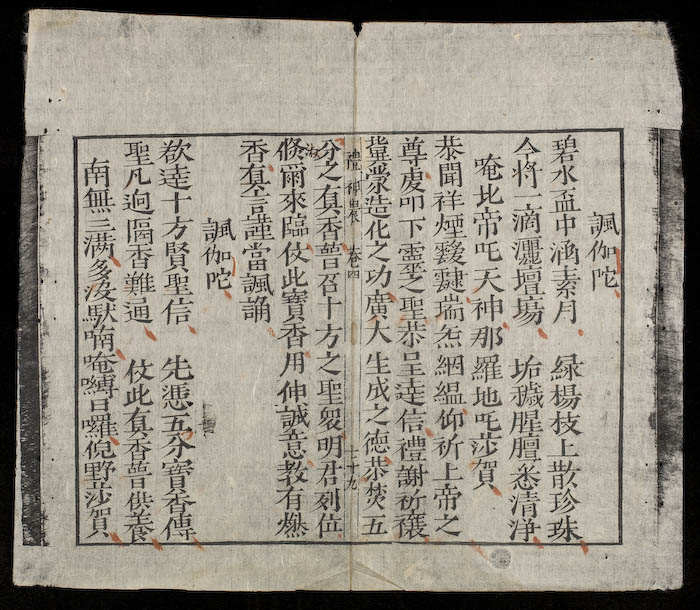 諷伽陀
碧水盃中涵素月　緑楊枝上散珍珠
今將一滴灑壇場　垢穢腥膻悉清淨
唵比帝吒天神那羅地吒莎賀
恭聞祥煙靉靆瑞炁絪緼仰祈上帝之
尊虔叩下靈之聖恭呈達信禮謝祈禳
蒙造化之功廣大生成之德恭焚五
禮神 卷四 七十九
分之真香普召十方之聖衆明君列位
倐爾來臨仗此寶香用伸誠意教有爇
香真言謹當諷誦
諷伽陀
欲達十方賢聖信　先憑五分寶香傳
聖凡逈隔杳難通　仗此真香普供養
南無三滿多沒馱喃唵嚩日囉倪野莎賀